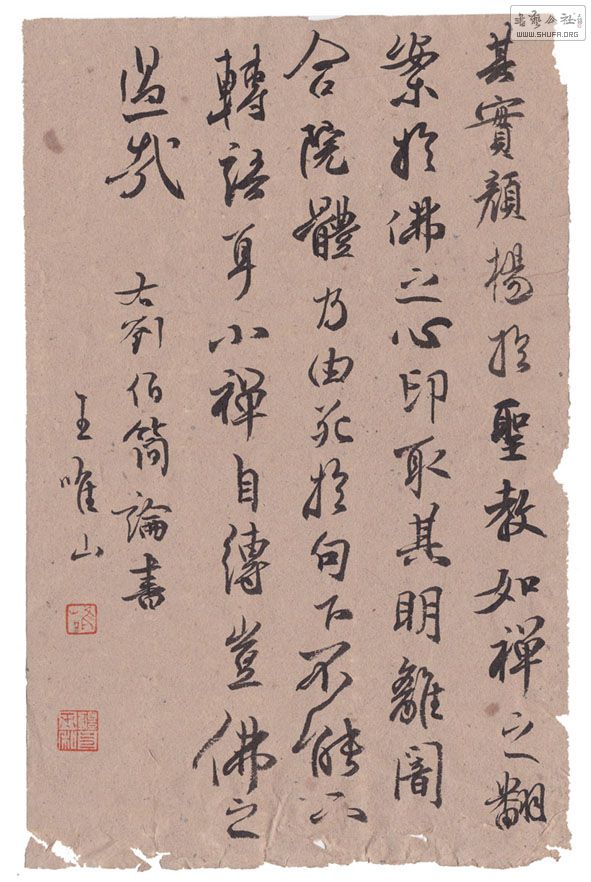 書藝公社
WWW.SHUFA.ORG
其實顏楊於聖教如禪之翻
案於佛之心印取其明離闇
合院體乃由死於句下不能下
轉語耳小禪自縛豈佛之
過哉
右劉伯簡論書
王唯山